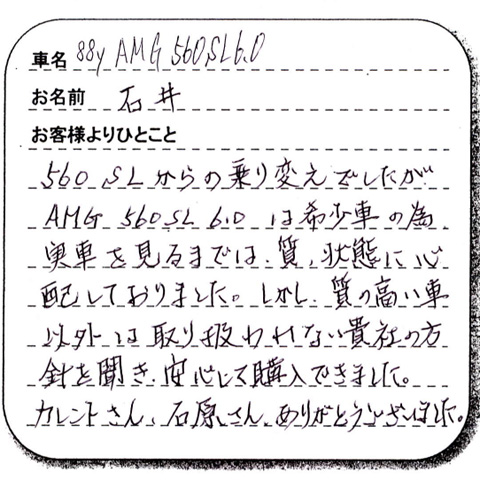 車名 88y AMG 560SL6.0
お名前 石井
お客様よりひとこと
560 SLからの乗り変えでしたが
AMG 560SL 6.0 は希少車の為、
実車を見るまでは、質、状態に心
配しておりました。しかし、質の高い車
以外は取り扱われない貴社の方
針を聞き、安心して購入できました。
カレントさん、石原さん、ありがとうございました。